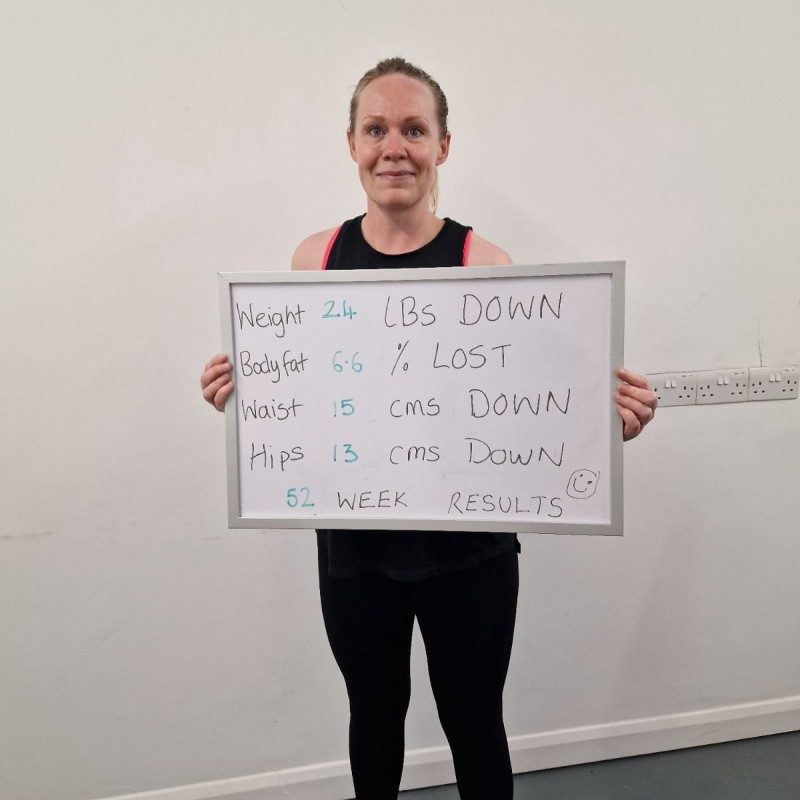 Weight 24 LBS DOWN
Bodyfat 6.6 % LOST
Waist 15 cms DOWN
Hips 13 cms DOWN
52 WEEK RESULTS